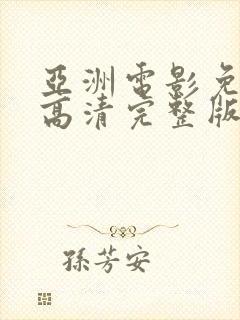 亞洲電影免
高清完整版
孫芳安